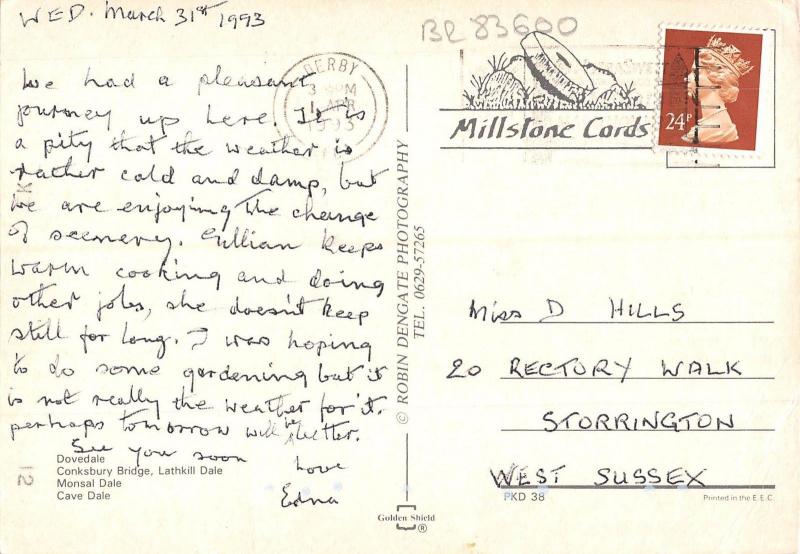 WED. March 31st 1993
We had a pleasant
journey up here. It is
a pity that the weather is
rather cold and damp, but
we are enjoying the change
of scenery. Gillian keeps
warm cooking and doing
other jobs, she doesn't keep
still for long. I was hoping
to do some gardening but it
is not really the weather for it.
perhaps tomorrow will be better.
See you soon
Love
Edna
Dovedale
Conksbury Bridge, Lathkill Dale
Monsal Dale
Cave Dale
12
K
DERBY
1 APR
1993
© ROBIN DENGATE PHOTOGRAPHY
TEL. 0629-57265
Golden Shield
®
BR 83600
Millstone Cards
24P
Miss D HILLS
20 RECTORY WALK
STORRINGTON
WEST SUSSEX
PKD 38
Printed in the E.E.C.